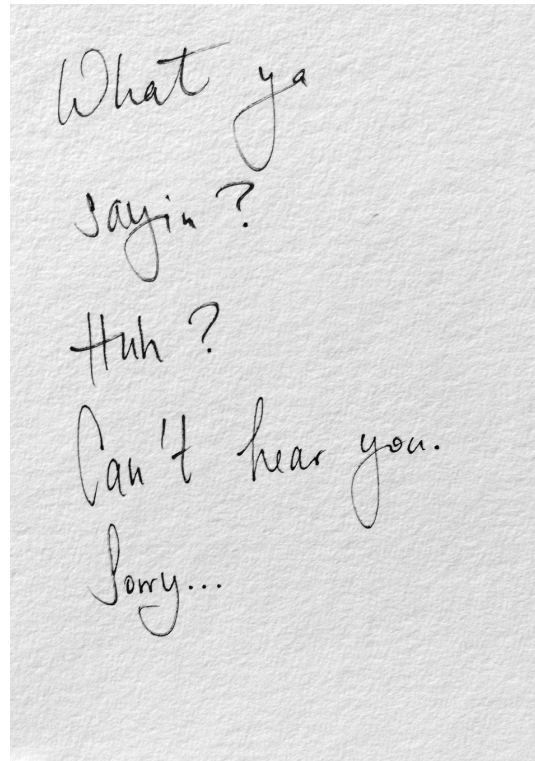 What ya
sayin?
Huh?
Can't hear you.
Sorry...